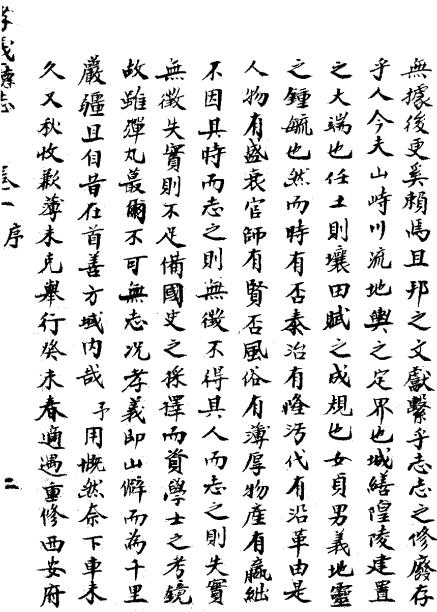 無據後更奚賴焉且邦之文獻繫乎志志之修廢存
乎人今夫山峙川流地輿之定界也城繕隍陵建置
之大端也任土則壤田賦之成規也女貞男義地靈
之鍾毓也然而時有否泰治有隆汚代有沿革由是
人物有盛衰官師有賢否風俗有薄厚物產有贏絀
不因其時而志之則無徵不得其人而志之則失實
無徵失實則不足備國史之採擇而資學士之考鏡
故雖彈丸蕞爾不可無志况孝義即山僻而為千里
嚴疆且自昔在首善方域内哉予用慨然奈下車未
久又秋收歉薄未克舉行癸未春適遇重修西安府
孝義廳志 卷一 序 二